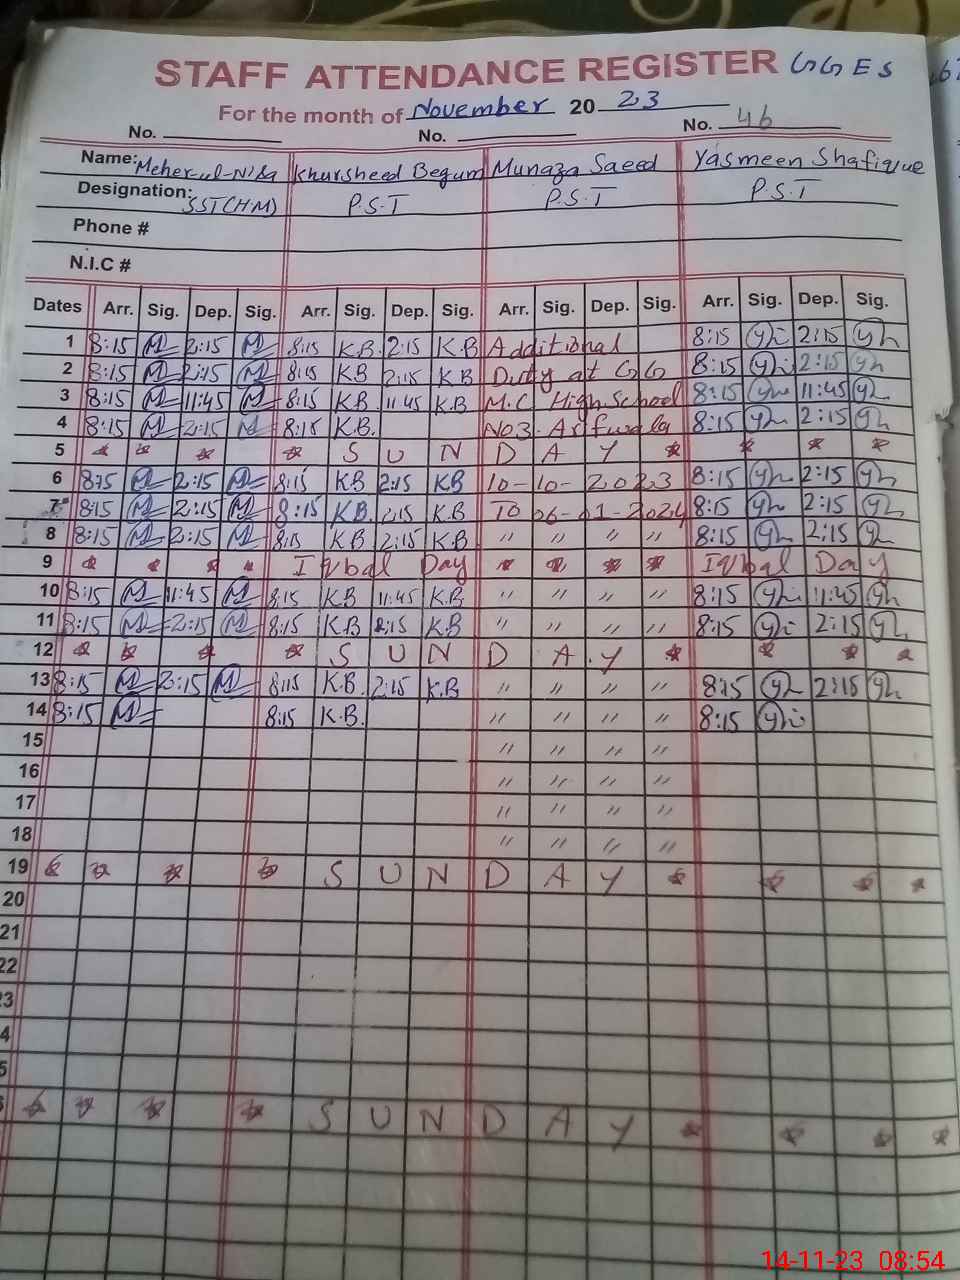 STAFF ATTENDANCE REGISTER GGES
For the month of November 20 23
No. No. No. 46
Name: Meher-ul-Nisa Khursheed Begum Munaza Saeed Yasmeen Shafique
Designation: SST(HM) P.S.T P.S.T P.S.T
Phone #
N.I.C #
Dates Arr. Sig. Dep. Sig. Arr. Sig. Dep. Sig. Arr. Sig. Dep. Sig. Arr. Sig. Dep. Sig.
1 8:15 M 2:15 M 8:15 K.B. 2:15 K.B Additional 8:15 yh 2:15 yh
2 8:15 M 2:15 M 8:15 KB 2:15 KB Duty at GG 8:15 yh 2:15 yh
3 8:15 M 11:45 M 8:15 KB 11:45 K.B M.C High School 8:15 yh 11:45 yh
4 8:15 M 2:15 M 8:15 K.B. NO3. Arifwala 8:15 yh 2:15 yh
5 S U N D A Y
6 8:15 M 2:15 M 8:15 KB 2:15 KB 10-10-2023 8:15 yh 2:15 yh
7 8:15 M 2:15 M 8:15 KB. 2:15 K.B TO 06-01-2024 8:15 yh 2:15 yh
8 8:15 M 2:15 M 8:15 KB 2:15 K.B " " " " 8:15 yh 2:15 yh
9 Iqbal Day Iqbal Day
10 8:15 M 11:45 M 8:15 KB 11:45 K.B " " " " 8:15 yh 11:45 yh
11 8:15 M 2:15 M 8:15 K.B 2:15 KB " " " " 8:15 yh 2:15 yh
12 S U N D A Y
13 8:15 M 2:15 M 8:15 K.B. 2:15 K.B " " " " 8:15 yh 2:15 yh
14 8:15 M 8:15 K.B. " " " " 8:15 yh
15 " " " "
16 " " " "
17 " " " "
18 " " " "
19 S U N D A Y
20
21
22
3
4
5
S U N D A Y
14-11-23 08:54